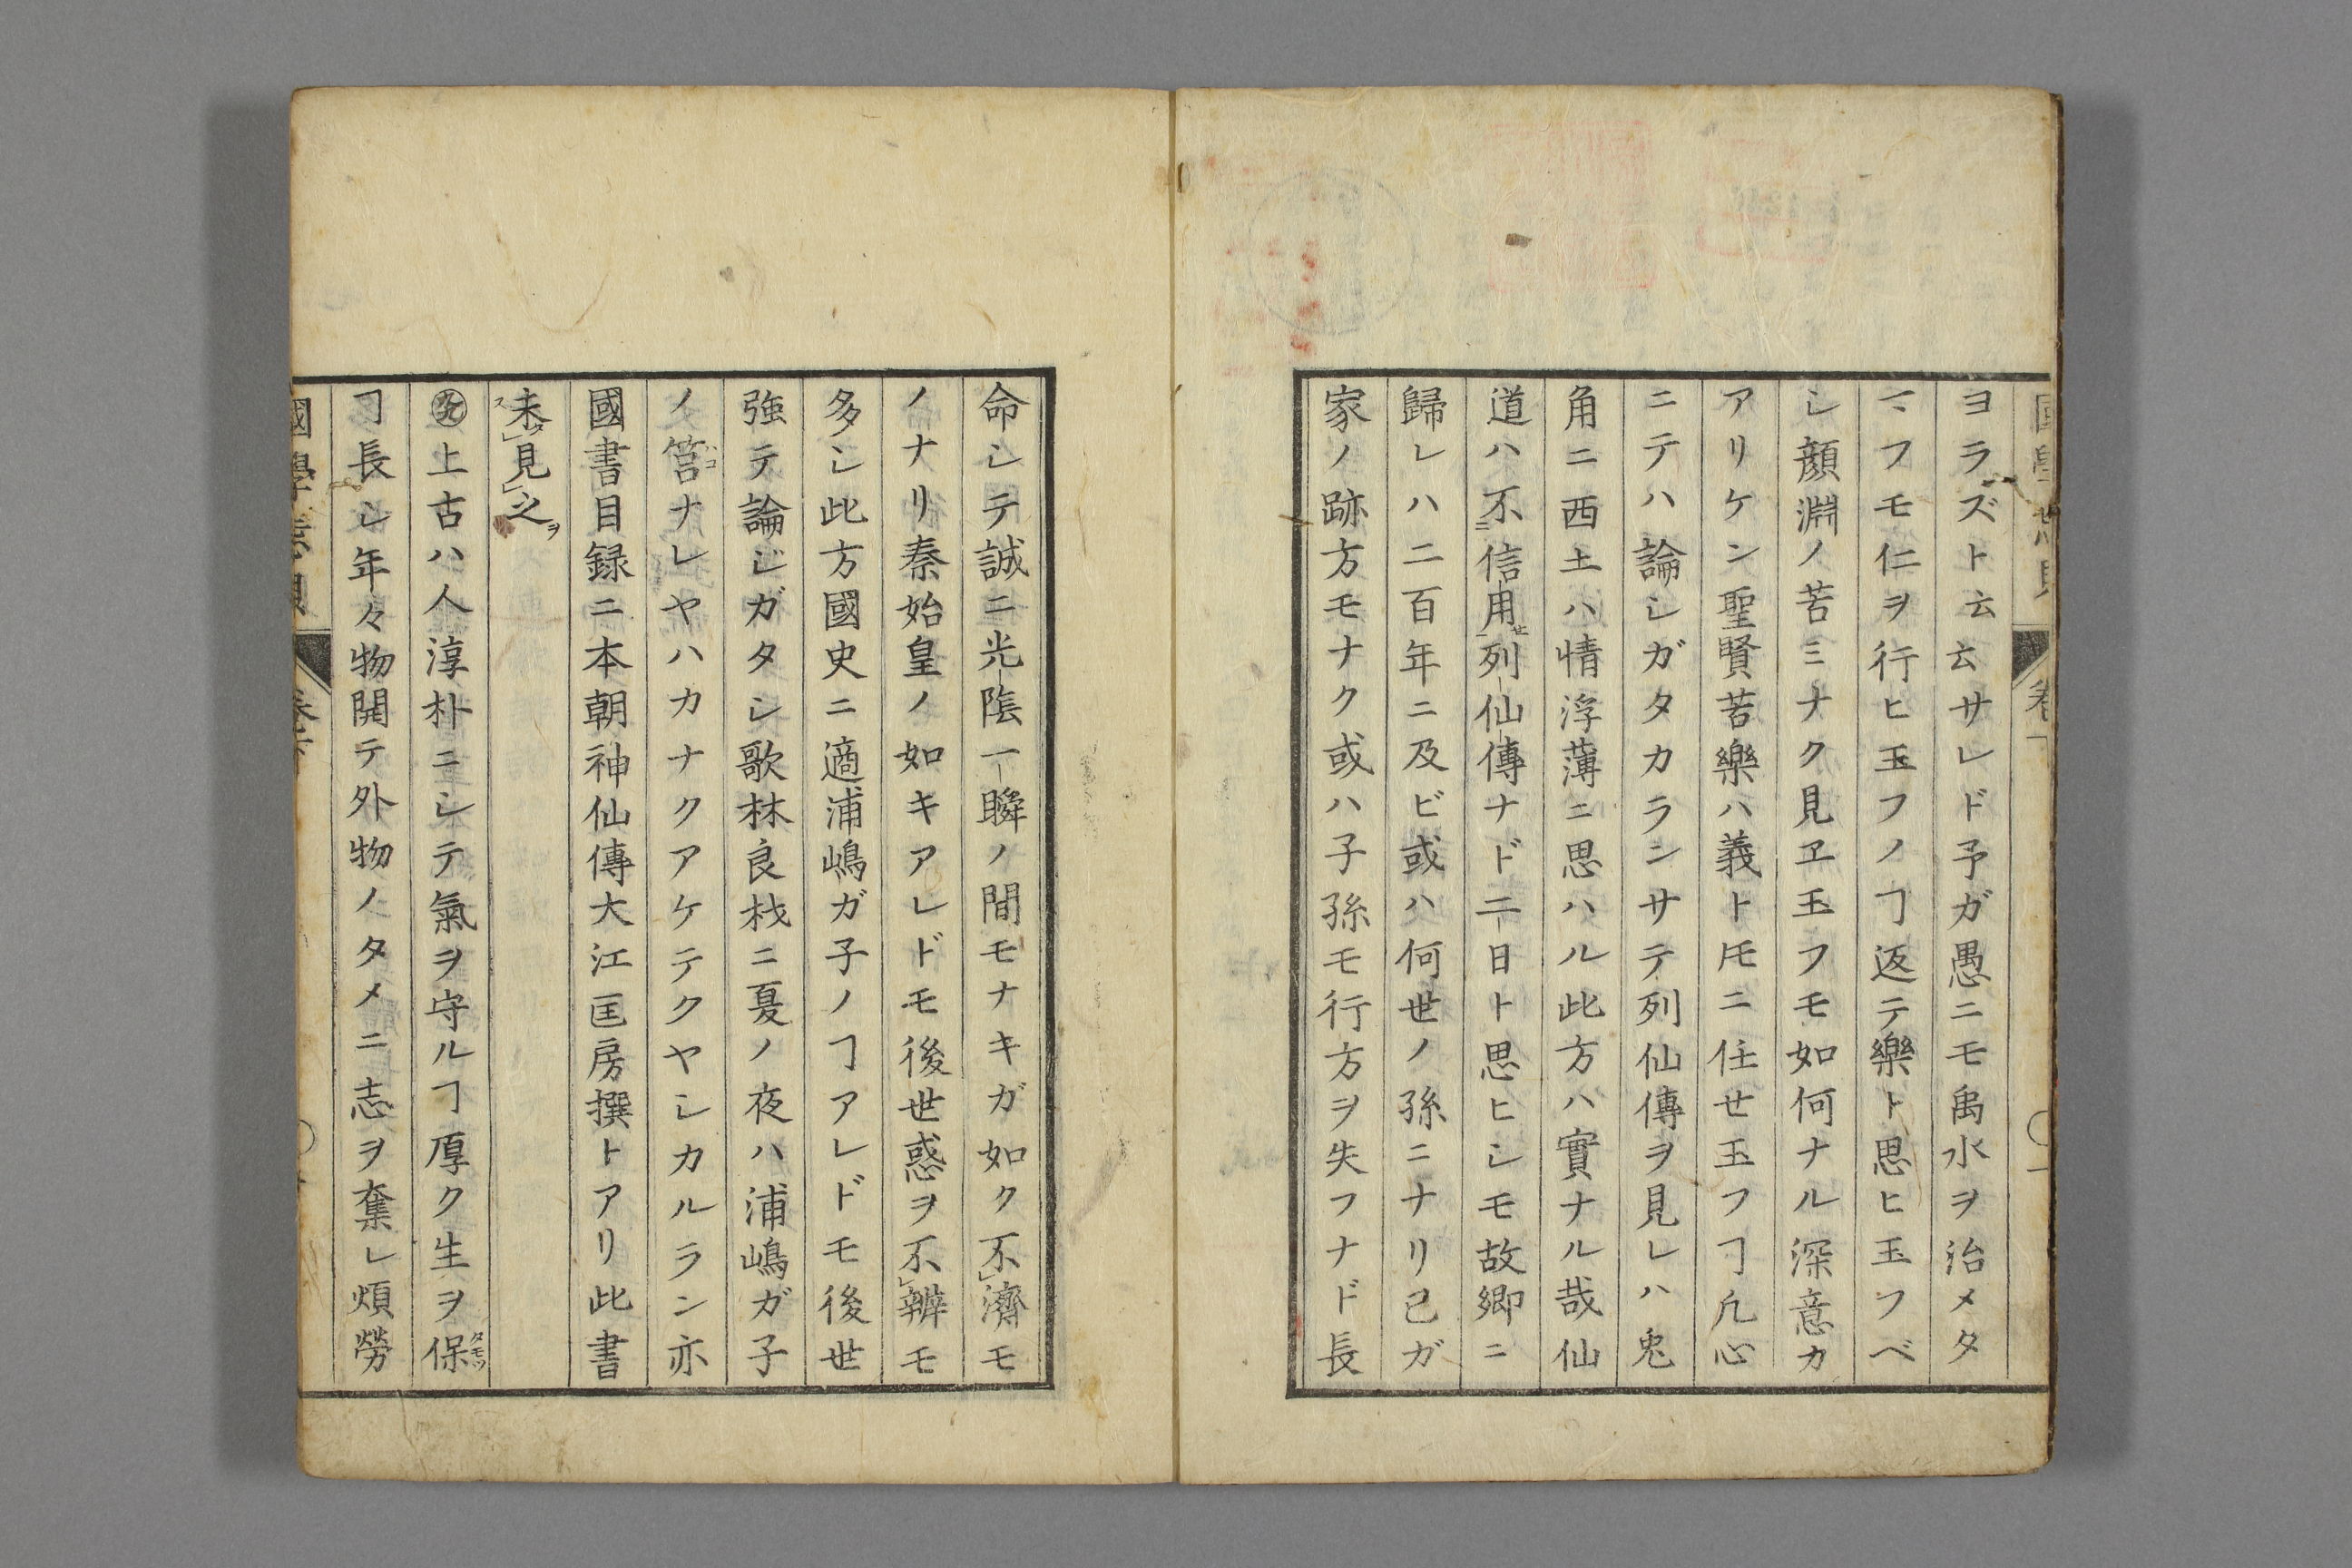 ヨラズト云云サレド予ガ愚ニモ禹水ヲ治メタ
マフモ仁ヲ行ヒ玉フノヿ返テ樂ト思ヒ玉フベ
シ顔淵ノ苦ミナク見ヱ玉フモ如何ナル深意カ
アリケン聖賢苦樂ハ義トトモニ任セ玉フヿ凡心
ニテハ論シガタカランサテ列仙傳ヲ見レハ兎
角ニ西土ハ情浮薄ニ思ハル此方ハ實ナル哉仙
道ハ不㆓信用㆒セ列仙傳ナド二日ト思ヒシモ故郷ニ
歸レハ二百年ニ及ビ或ハ何世ノ孫ニナリ己ガ
家ノ跡方モナク或ハ子孫モ行方ヲ失フナド長
命シテ誠ニ光陰一瞬ノ間モナキガ如ク不濟モ
ノナリ秦始皇ノ如キアレドモ後世惑ヲ不辨モ
多シ此方國史ニ適浦嶋ガ子ノヿアレドモ後世
強テ論ジガタシ歌林良材ニ夏ノ夜ハ浦嶋ガ子
ノ筥バコナレヤハカナクアケテクヤシカルラン亦
國書目録ニ本朝神仙傳大江匡房撰トアリ此書
未ダス見之ヲ
上古ハ人淳朴ニシテ氣ヲ守ルヿ厚ク生ヲ保タモツ
ヿ長シ年々物開テ外物ノタメニ志ヲ奪レ煩勞